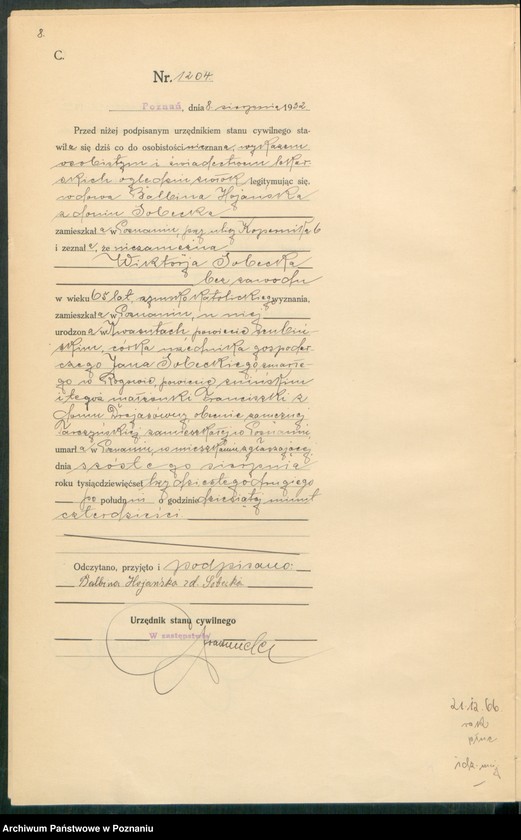 8.
C.
Nr. 1204.
Poznań, dnia 8 sierpnia 1932
Przed niżej podpisanym urzędnikiem stanu cywilnego sta-
wiła się dziś co do osobistości nieznana, wykazem
osobistym i świadectwem lekar-
skich oględzin zwłok legitymując się,
wdowa Balbina Hojańska
z domu Sobecka
zamieszkała w Poznaniu, przy ulicy Kopernika 6
i zeznała, że niezamężna
Wiktorja Sobecka
bez zawodu
w wieku 65 lat, rzymsko katolickiego wyznania,
zamieszkała w Poznaniu, u niej
urodzona w powiecie
skim, córka urzędnika gospodar-
czego Jana Sobeckiego zmarłe-
go w Rogowie, powiecie żnińskim
i tegoż małżonki Franciszki z
domu obecnie
zamieszkałej w Poznaniu
umarła w Poznaniu, w mieszkaniu zgłaszającej
dnia szóstego sierpnia
roku tysiącdziewięćset trzydziestego drugiego
po południu o godzinie dziesiątej minut
czterdzieści
Odczytano, przyjęto i podpisano
Balbina Hojańska zd. Sobecka
Urzędnik stanu cywilnego
W zastępstwie
21.12.66
Archiwum Państwowe w Poznaniu